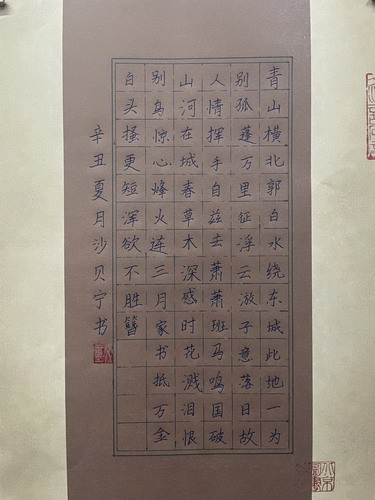 青山横北郭白水绕东城此地一为
别孤蓬万里征浮云游子意落日故
人情挥手自兹去萧萧班马鸣国破
山河在城春草木深感时花溅泪恨
别鸟惊心烽火连三月家书抵万金
白头搔更短浑欲不胜簪
辛丑夏月沙贝宁书